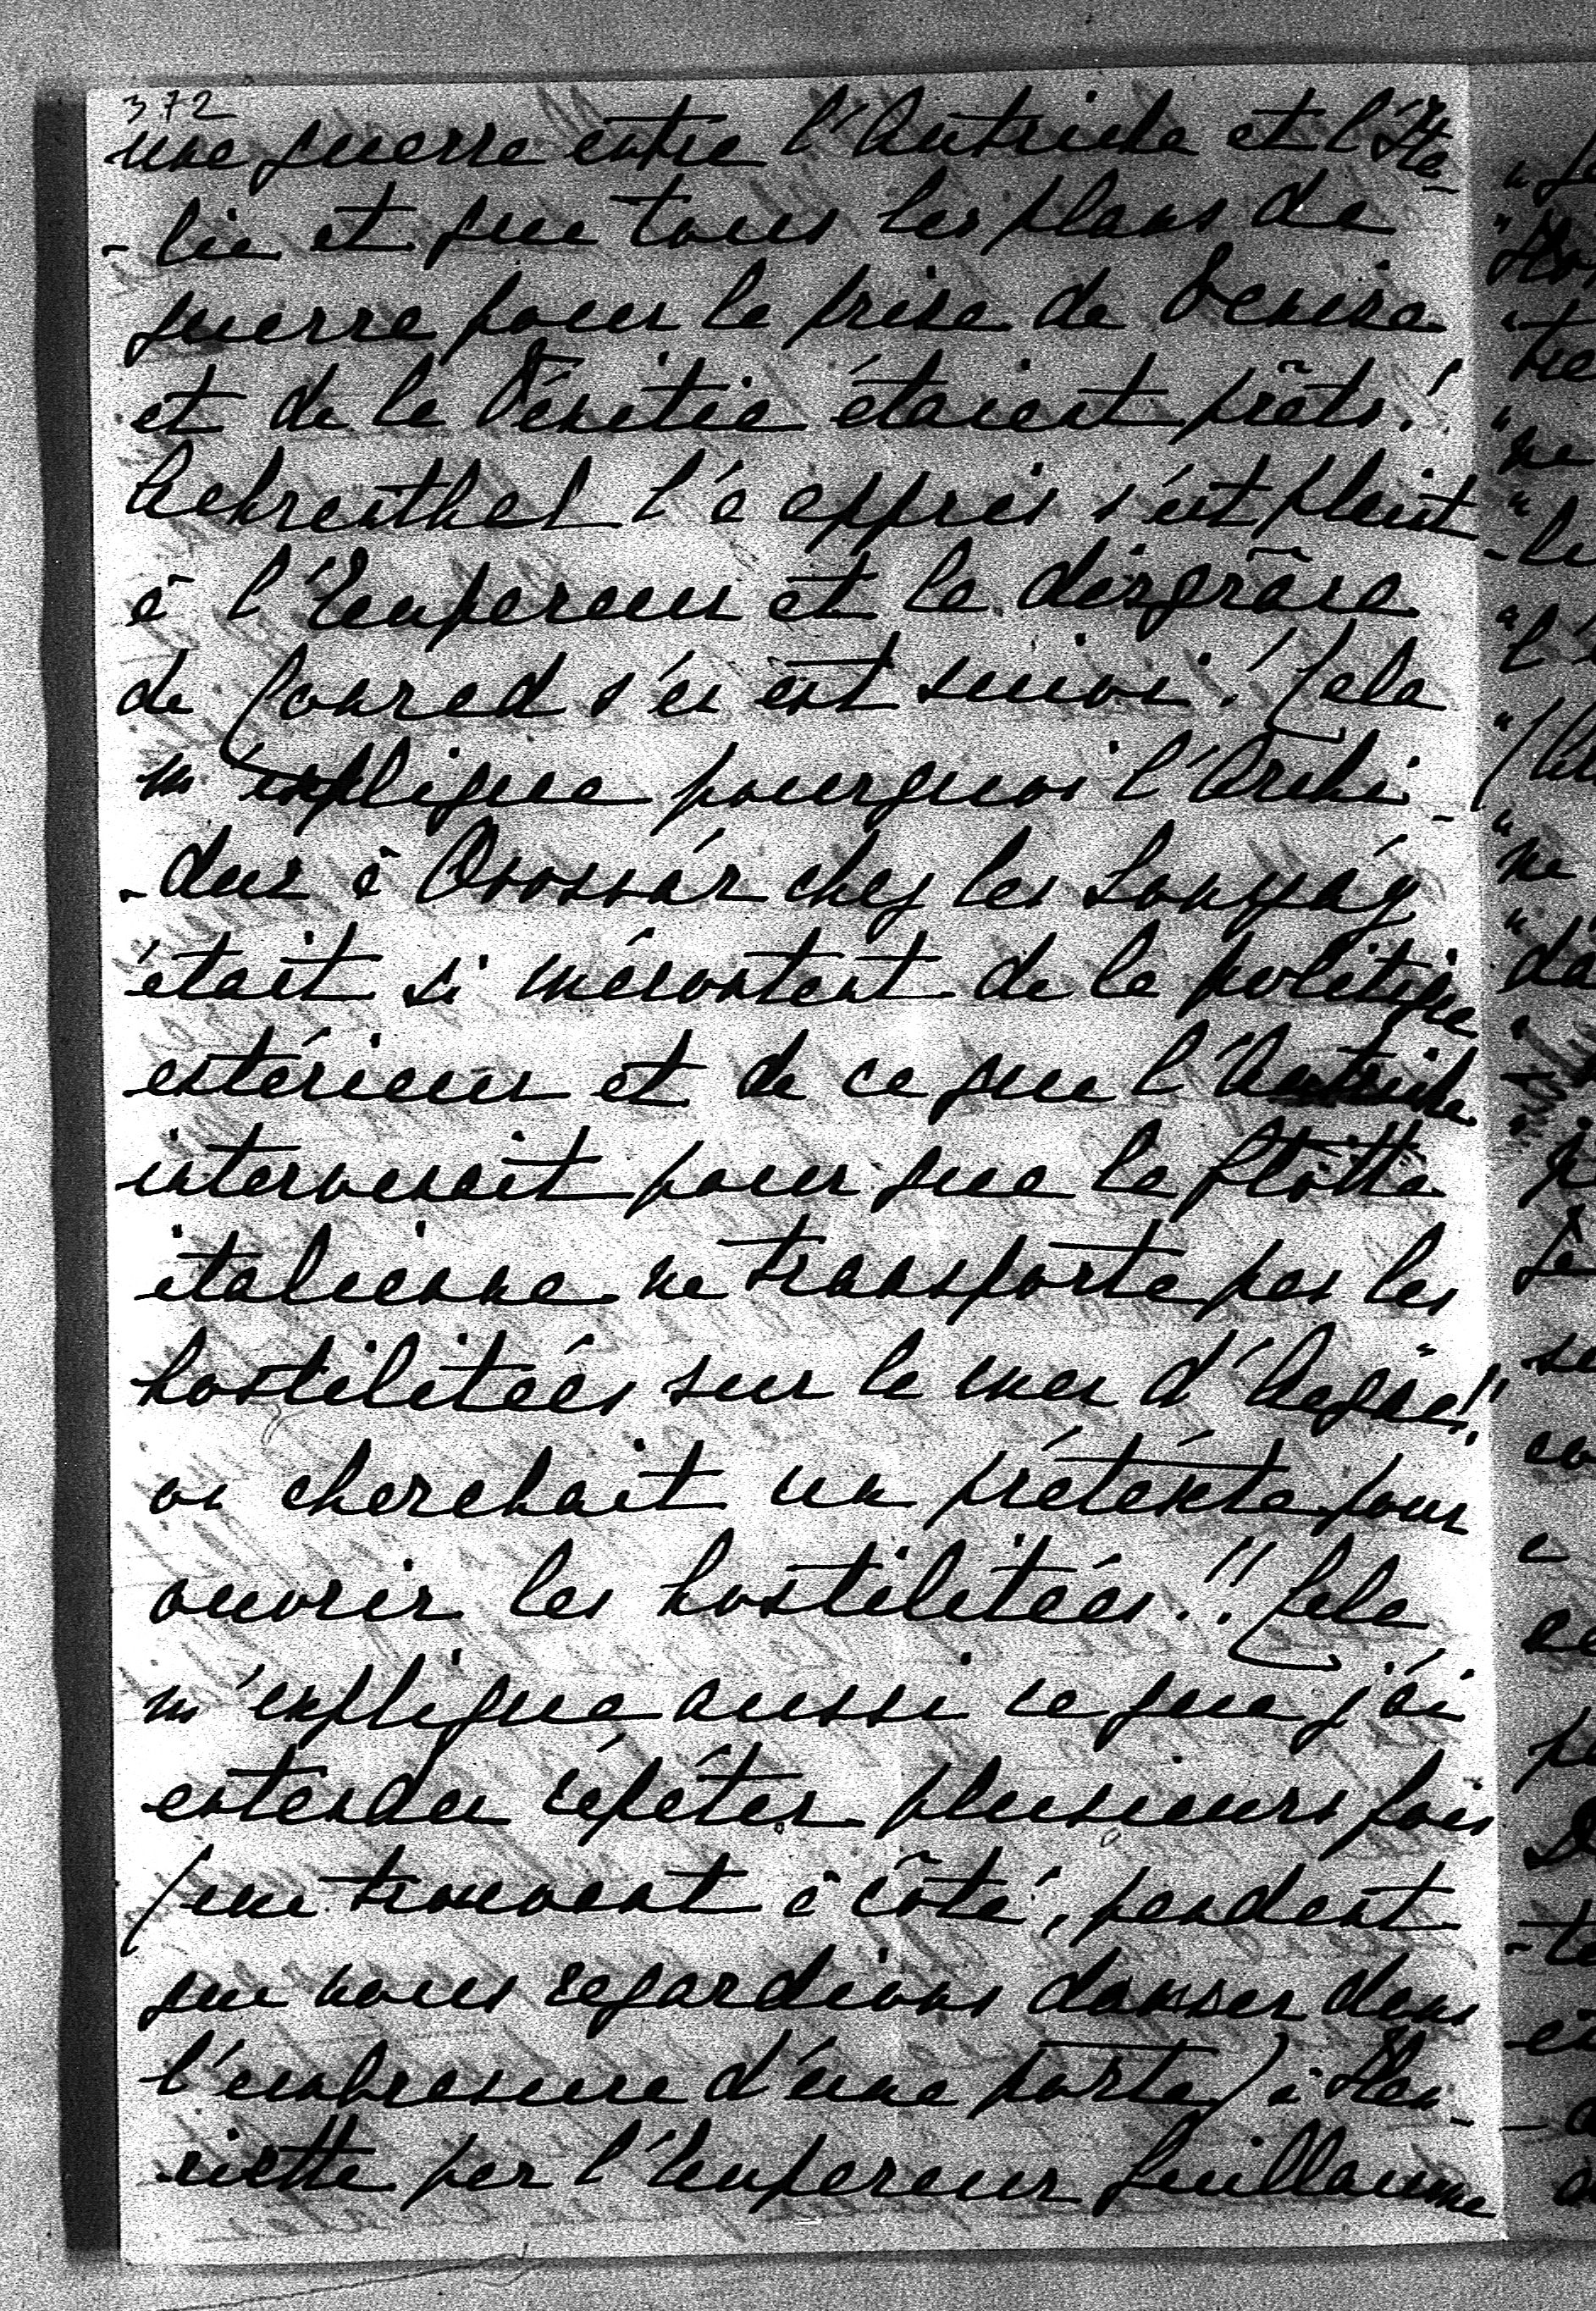 372
une guerre entre l'Autriche et l'Ita-
-lie et que tous les plans de
guerre pour la prise de Venise
et de la Vénétie étaient prêts!
Aehrenthal l'a appris s'est plaint
à l'Empereur et la disgrâce
de Conrad s'en est suivi! Cela
m'explique pourquoi l'Archi-
-duc à Oroszvár chez les Lonyay
était si mécontent de la politique
extérieur et de ce que l'Autriche
intervenait pour que la flôtte
italienne ne transporte pas les
hostilitées sur la mer d'Aegée!!
on cherchait un prétexte pour
ouvrir les hostilitées!! Cela
m'explique aussi ce que j'ai
entendu répéter plusieurs fois
(me trouvant à côté, pendant
que nous regardions danser dans
l'embrasure d'une porte) à Hen-
-riette par l'Empereur Guillaume